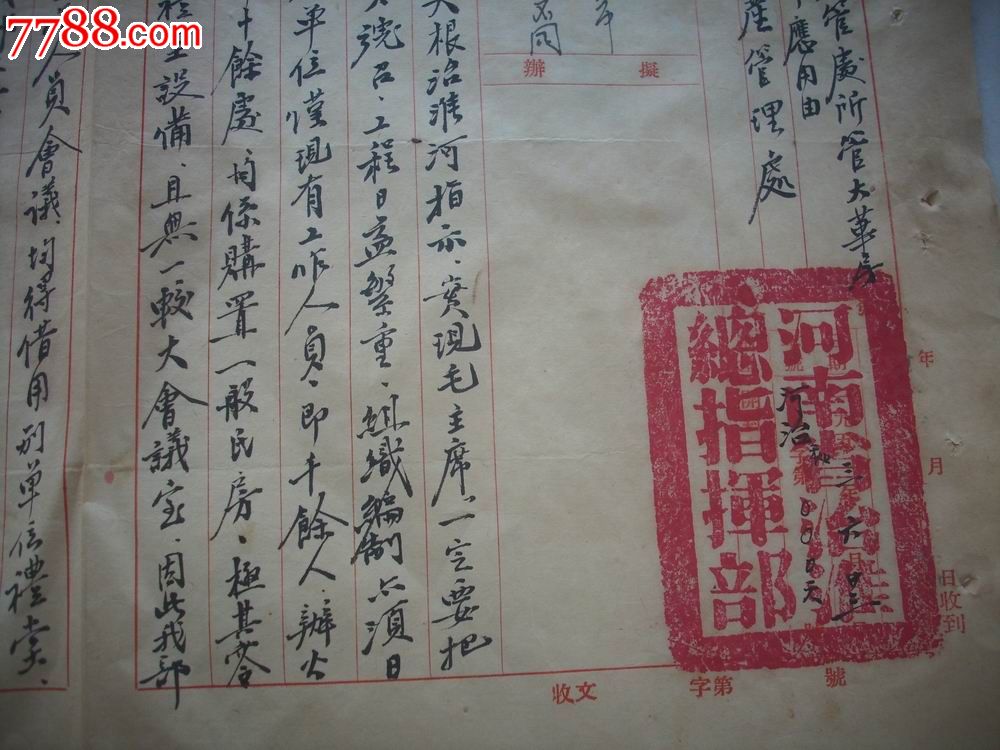 7788.com
中国收藏热线
管處所管大華房
應用由
產管理處
不同
擬
辦
根治淮河指示、實現毛主席"一定要把
號召、工程日益繁重、組織編制亦須日
單位僅現有工作人員、即千餘人、辦公
十餘處、均係購置一般民房、極其零
設備、且無一較大會議室、因此我部
人員會議、均得借用別單位禮堂、
河南省治淮
總指揮部
河治
年
月
日收到
收文
字第
號